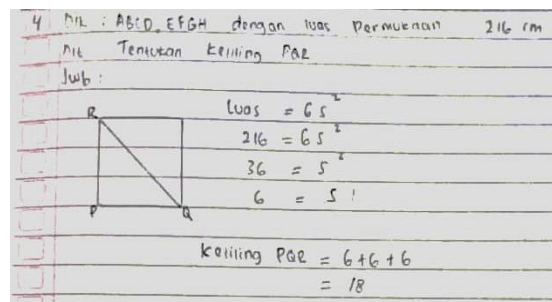 4 Dik : ABCD.EFGH dengan luas permukaan 216 cm
Dit Tentukan keliling PQR
Jwb :
luas = 6s²
216 = 6s²
36 = s²
6 = s
R
P
Q
keliling PQR = 6+6+6
= 18